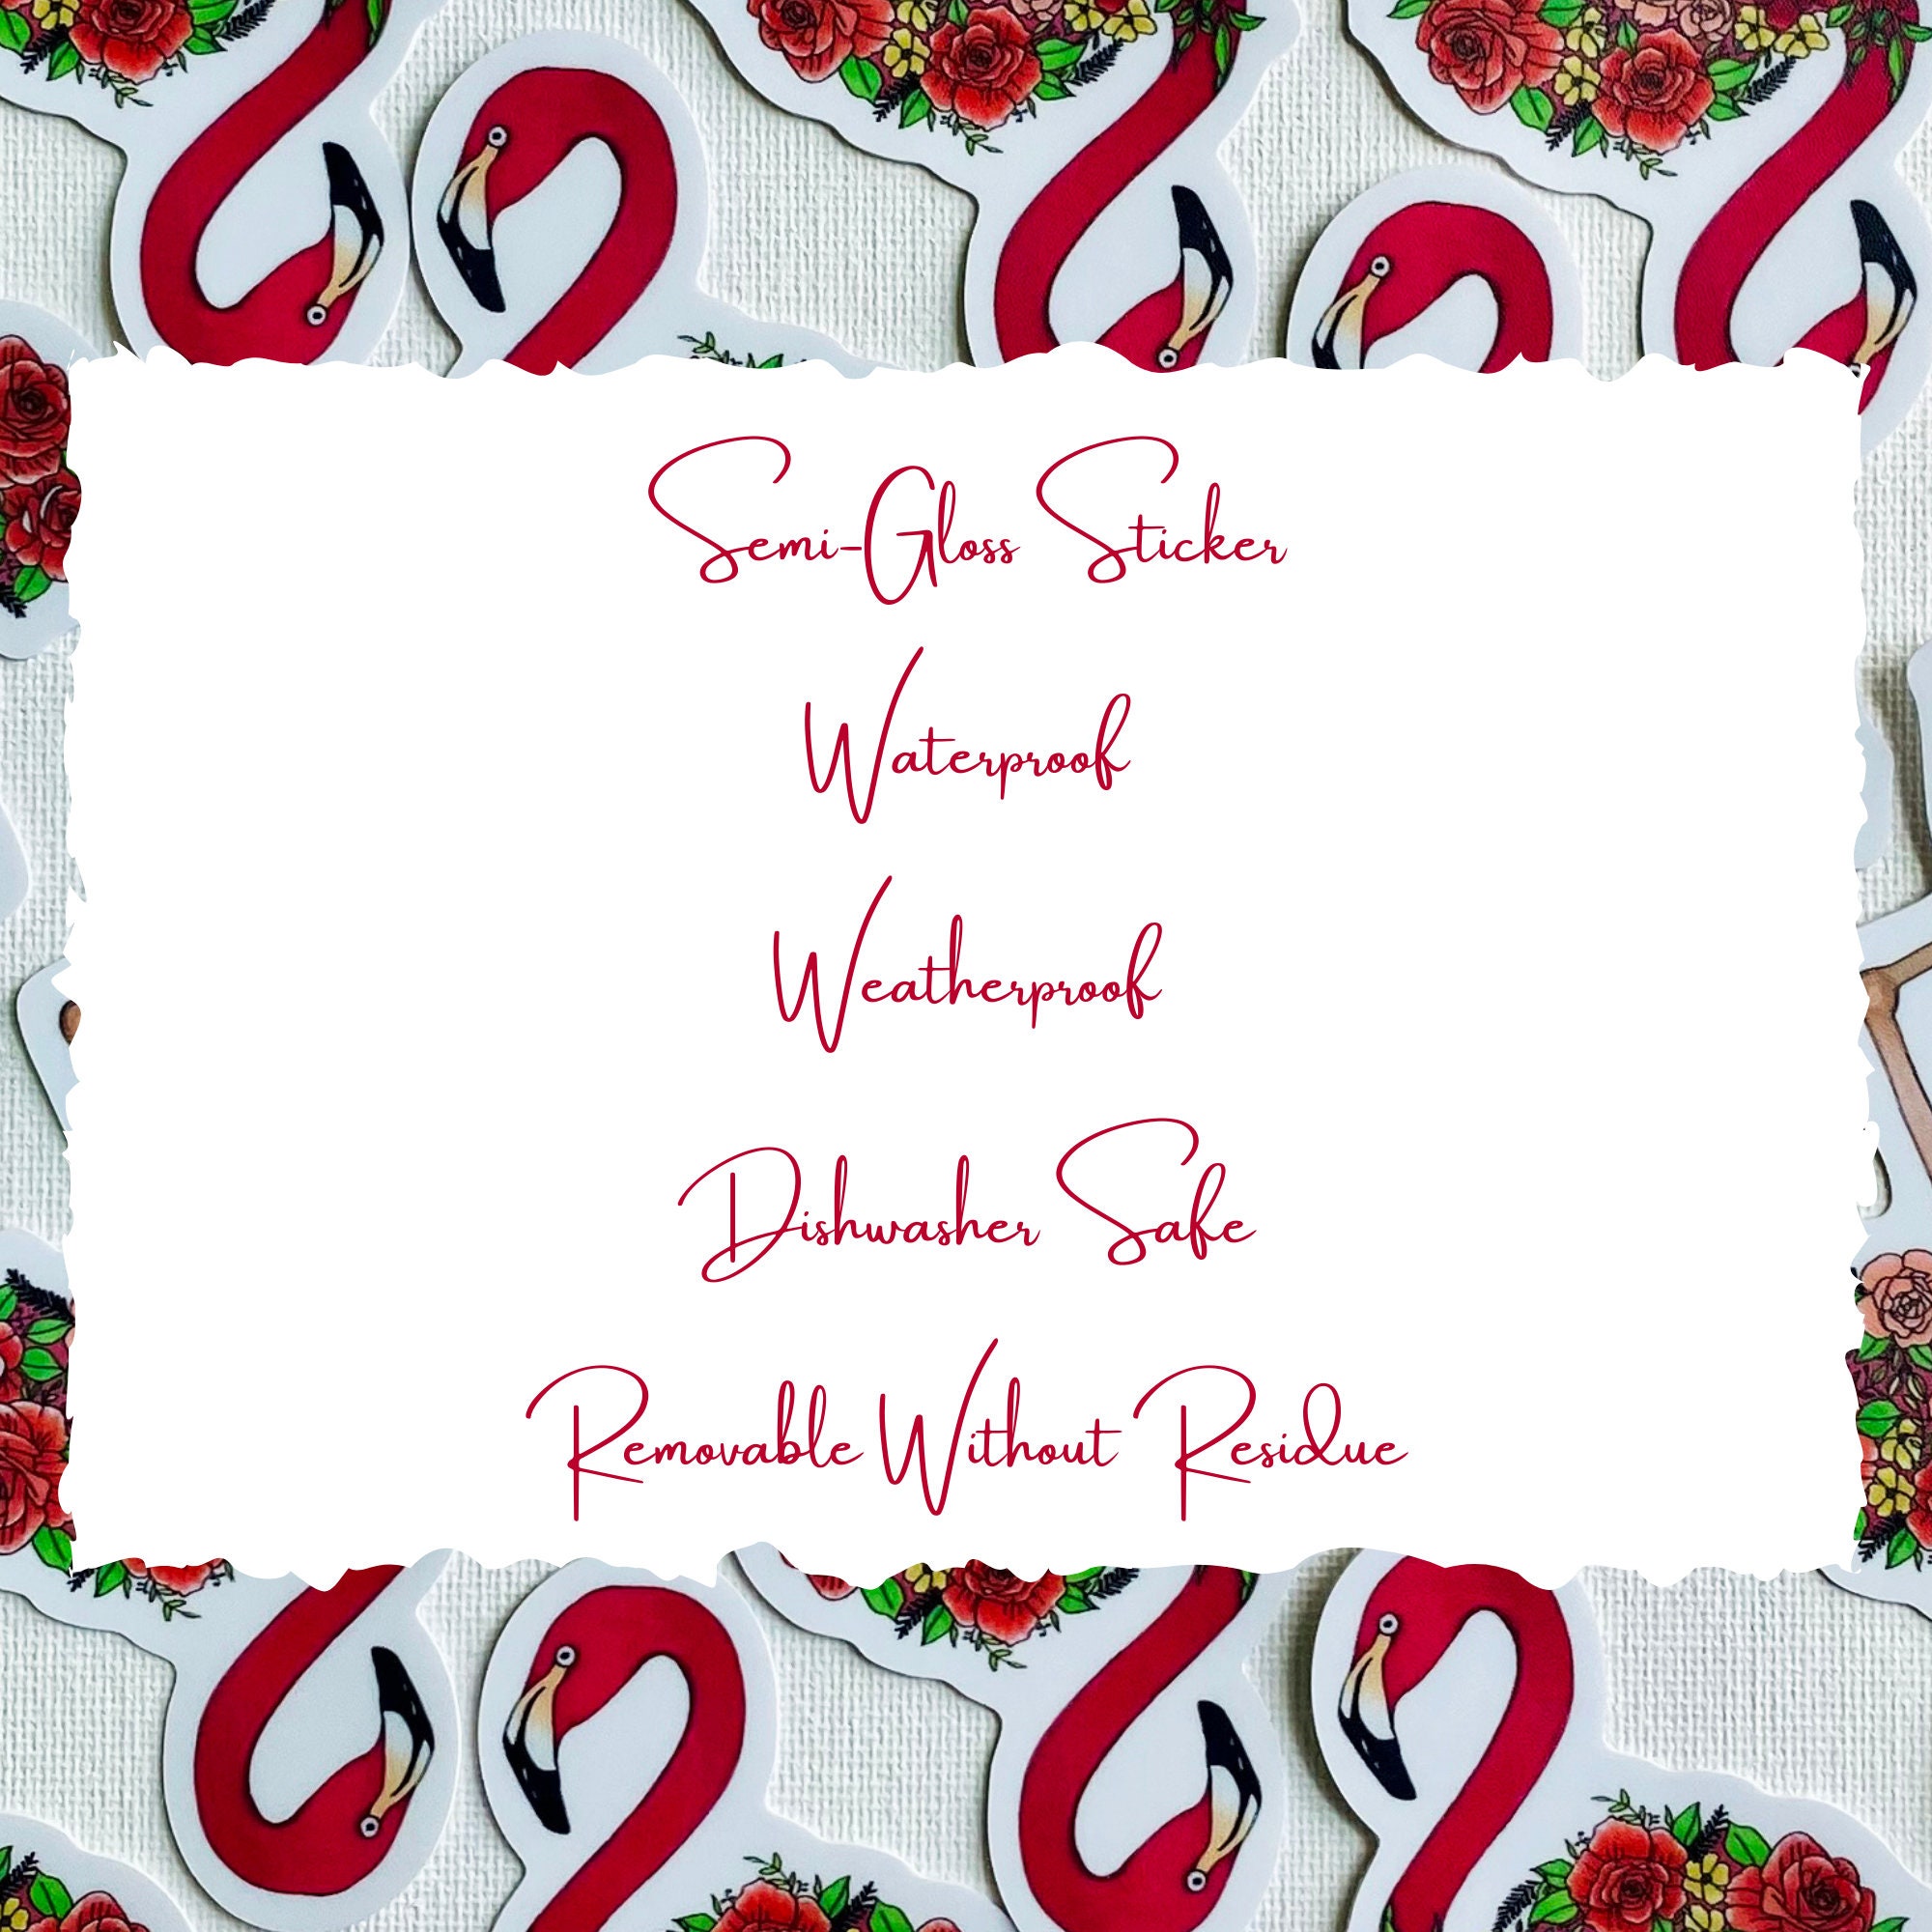 Semi-Gloss Sticker
Waterproof
Weatherproof
Dishwasher Safe
Removable Without Residue